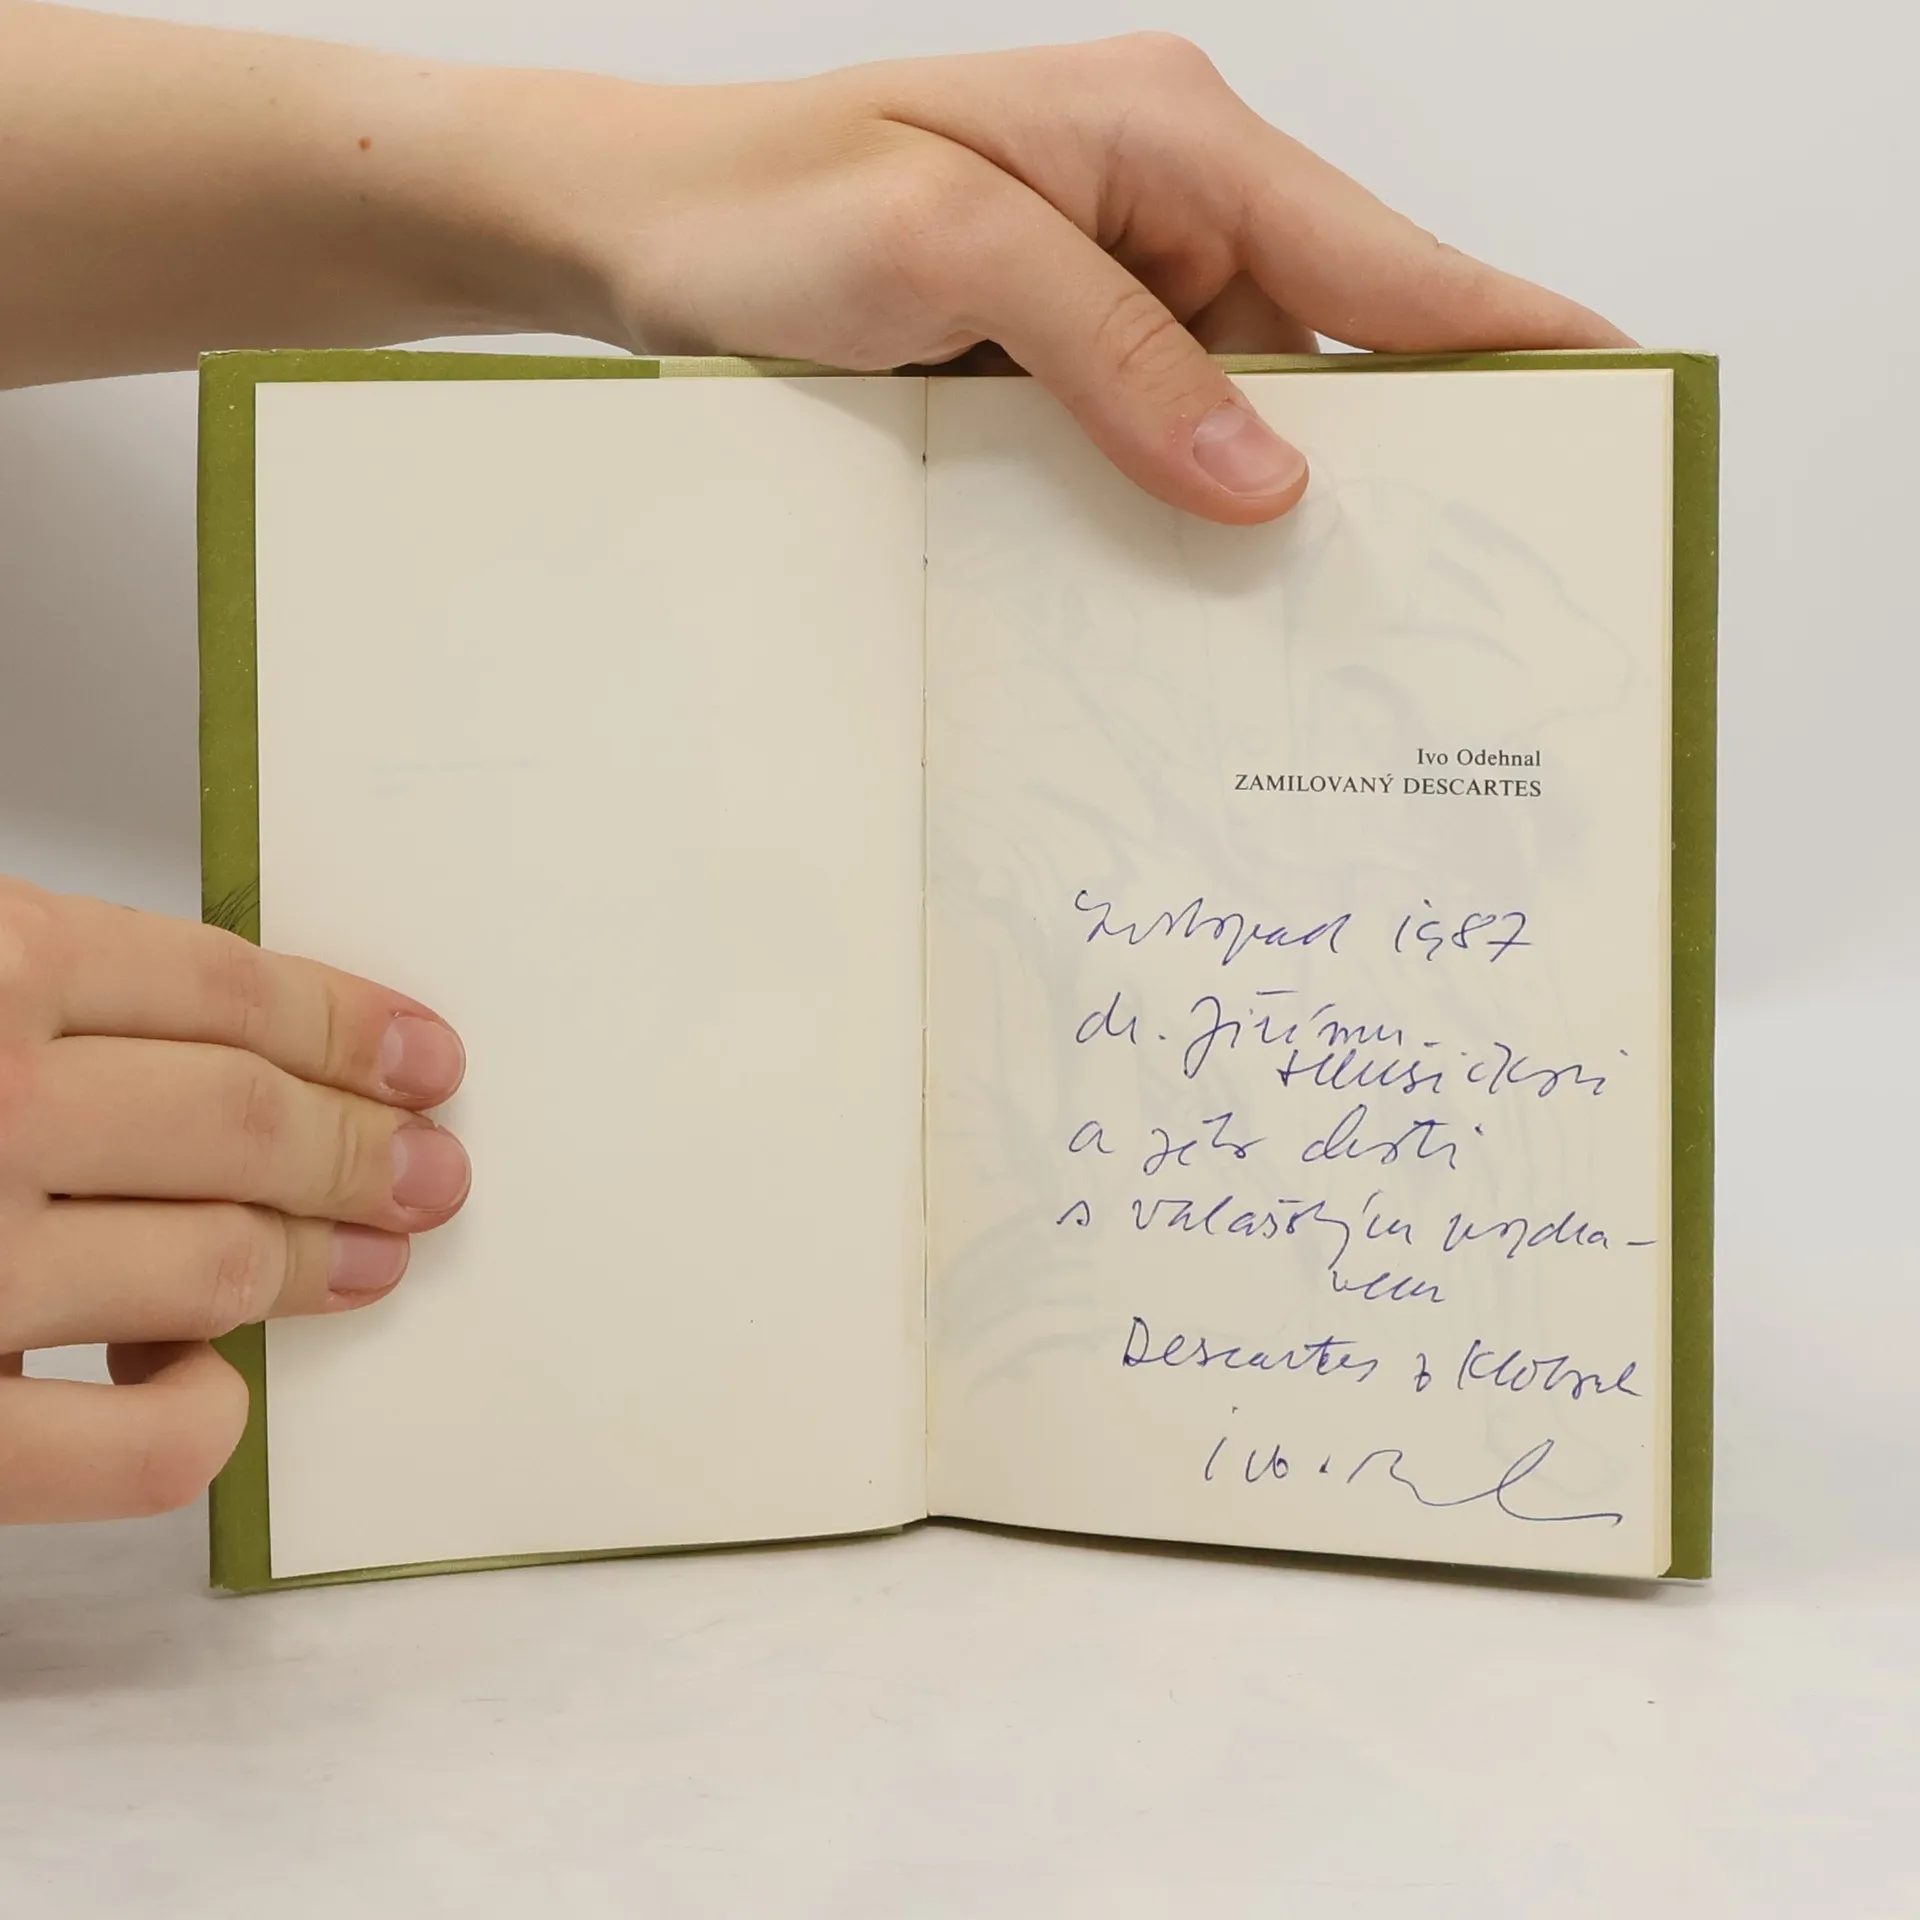 Ivo Odehnal
ZAMILOVANÝ DESCARTES
Listopad 1987
dr. Jiřímu
Hlušičkovi
a jeho choti
s valašským pozdra-
vem
Descartes z Klobouk
ivo.